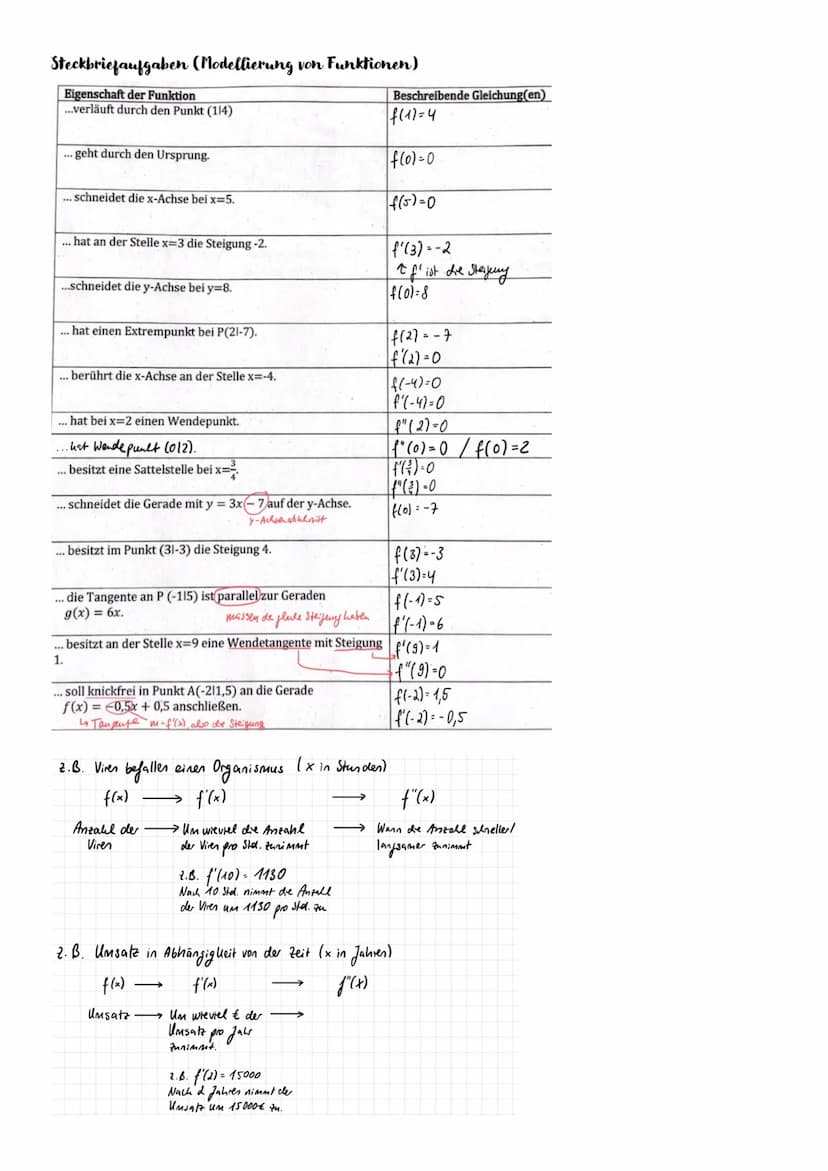 Steckbriefaufgaben (Modellierung von Funktionen)
Eigenschaft der Funktion
Beschreibende Gleichung(en)
...verläuft durch den Punkt (1|4)
f(1)=4
... geht durch den Ursprung.
f(0)=0
... schneidet die x-Achse bei x=5.
f(5)=0
... hat an der Stelle x=3 die Steigung -2.
f'(3)=-2
↑ f' ist die Steigung
...schneidet die y-Achse bei y=8.
f(0)=8
... hat einen Extrempunkt bei P(2|-7).
f(2)=-7
f'(2)=0
... berührt die x-Achse an der Stelle x=-4.
f(-4)=0
f'(-4)=0
... hat bei x=2 einen Wendepunkt.
f"(2)=0
...hat Wendepunkt (0|2).
f"(0)=0 / f(0)=2
... besitzt eine Sattelstelle bei x=3/4.
f'(3/4)=0
f"(3/4)=0
... schneidet die Gerade mit y = 3x - 7 auf der y-Achse.
y-Achsenabschnitt
f(0)=-7
... besitzt im Punkt (3|-3) die Steigung 4.
f(3)=-3
f'(3)=4
... die Tangente an P (-1|5) ist parallel zur Geraden
g(x) = 6x.
müssen die gleiche Steigung haben
f(-1)=5
f'(-1)=6
... besitzt an der Stelle x=9 eine Wendetangente mit Steigung
1.
f'(9)=1
f"(9)=0
... soll knickfrei in Punkt A(-2|1,5) an die Gerade
f(x) = -0,5x + 0,5 anschließen.
↳ Tangente m=f'(x), also die Steigung
f(-2)=1,5
f'(-2)=-0,5
z.B. Viren befallen einen Organismus (x in Stunden)
f(x) → f'(x) → f"(x)
Anzahl der → Um wieviel die Anzahl → Wann die Anzahl schneller/
Viren der Viren pro Std. zunimmt langsamer zunimmt
z.B. f'(10)=1130
Nach 10 Std. nimmt die Anzahl
der Viren um 1130 pro Std. zu
z.B. Umsatz in Abhängigkeit von der Zeit (x in Jahren)
f(x) → f'(x) → f"(x)
Umsatz → Um wieviel € der →
Umsatz pro Jahr
zunimmt.
z.B. f'(2)=15000
Nach 2 Jahren nimmt der
Umsatz um 15000€ zu.